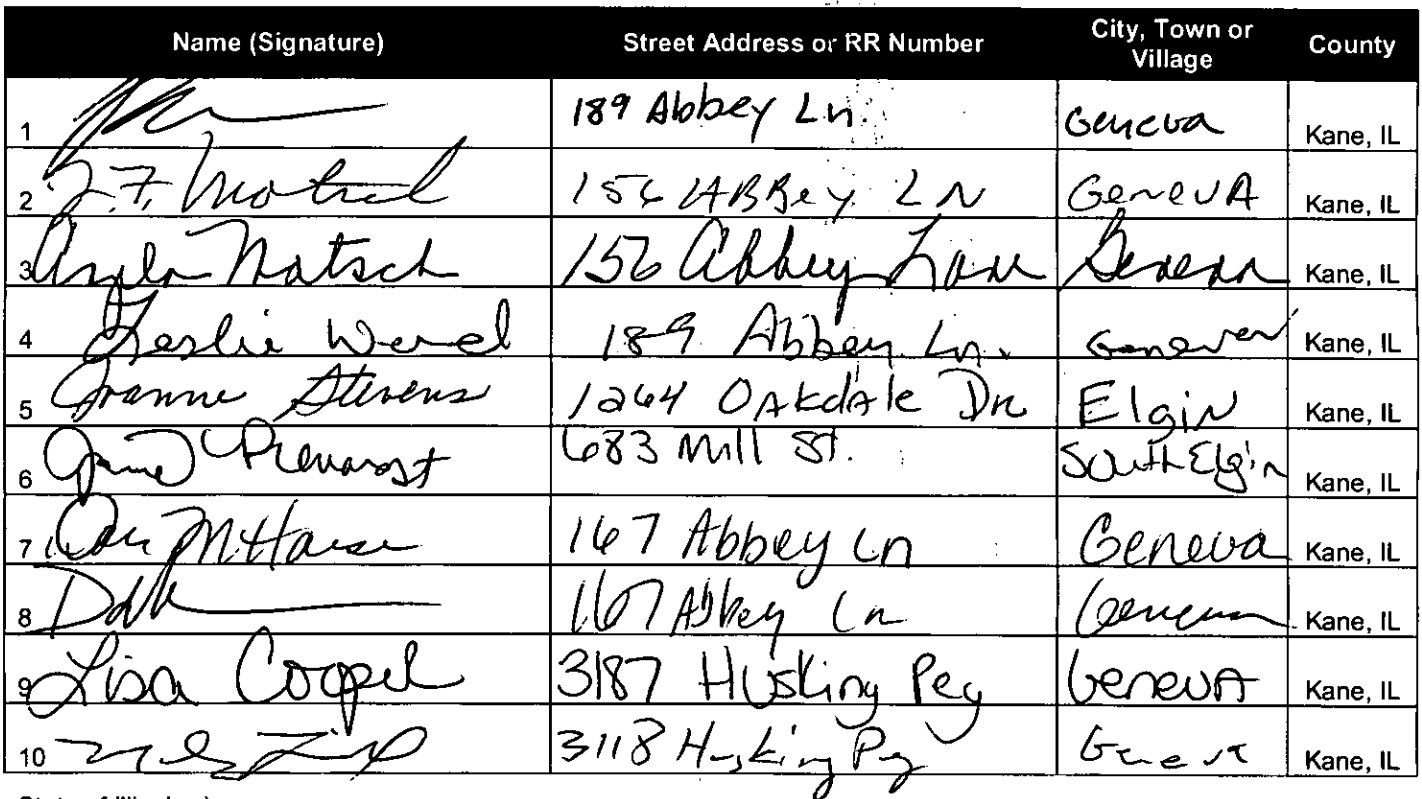 Name (Signature) Street Address or RR Number City, Town or Village County
1 189 Abbey Ln. Geneva Kane, IL
2 J.F. Motsch 156 ABBey LN GenevA Kane, IL
3 Angela Motsch 156 Abbey Lane Geneva Kane, IL
4 Leslie 189 Abbey Ln. Geneva Kane, IL
5 Joanne Stevens 1264 OAkdAle Dr Elgin Kane, IL
6 683 Mill St. South Elgin Kane, IL
7 167 Abbey Ln Geneva Kane, IL
8 167 Abbey Ln Geneva Kane, IL
9 Lisa Cooper 3187 Husking Peg GenevA Kane, IL
10 3118 Husking Peg Geneva Kane, IL